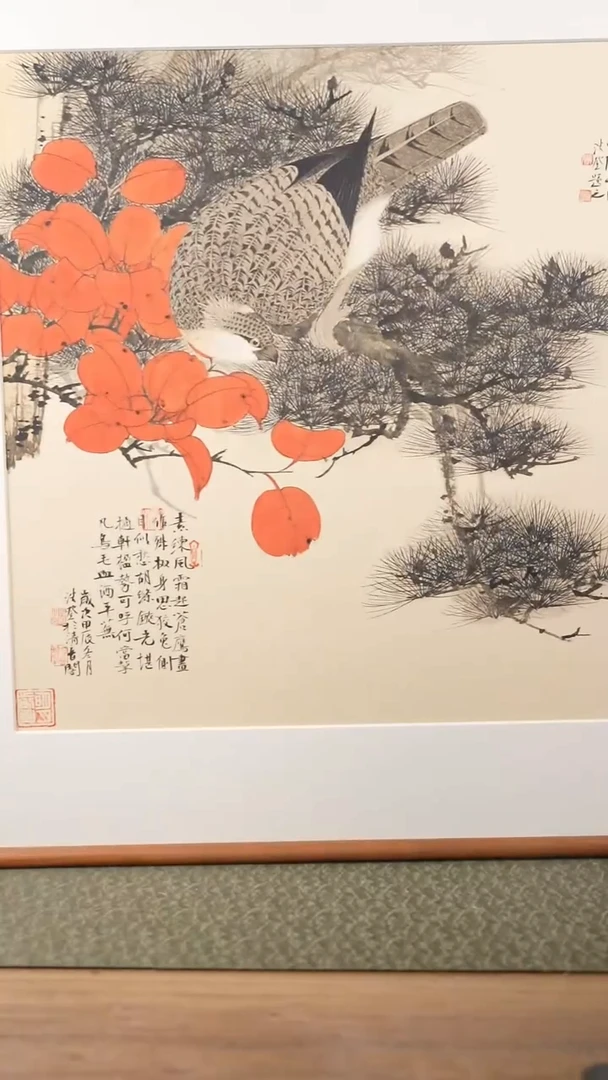 素練風霜起蒼鷹畫
作殊㧐身思狡兔側
目似愁胡絛鏇光堪
摘軒楹勢可呼何當擊
凡鳥毛血洒平蕪
歲次甲辰冬月
於清